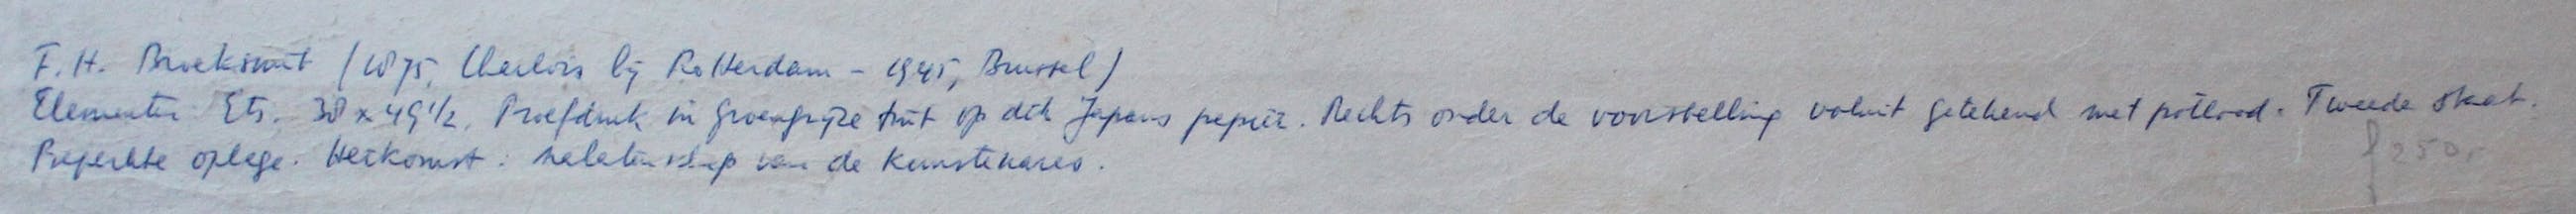 F.H. Broeksmit (1875, Charlois bij Rotterdam - 1945, Brussel)
Elementen. Ets. 38 x 49 1/2. Proefdruk in groengrijze tint op dik Japans papier. Rechts onder de voorstelling voluit getekend met potlood. Tweede staat.
Beperkte oplage. Herkomst: nalatenschap van de kunstenares.
f 250,-